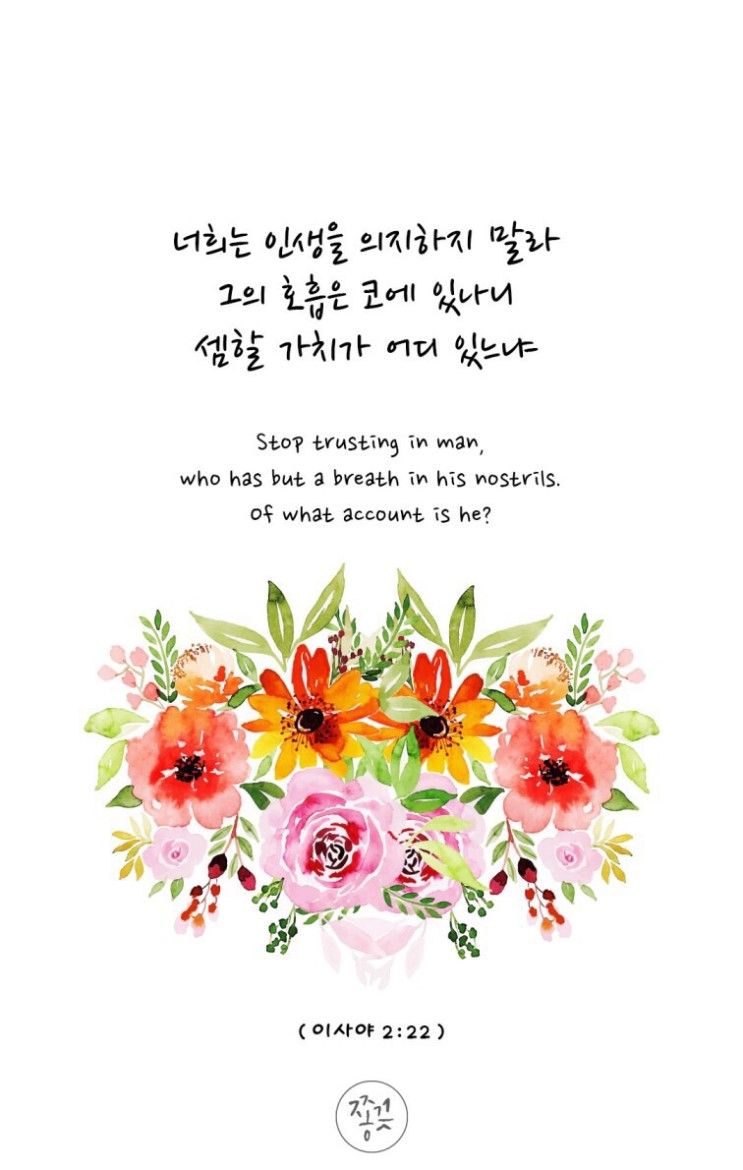 너희는 인생을 의지하지 말라
그의 호흡은 코에 있나니
셈할 가치가 어디 있느냐
Stop trusting in man,
who has but a breath in his nostrils.
Of what account is he?
(이사야 2:22)
쫑긋